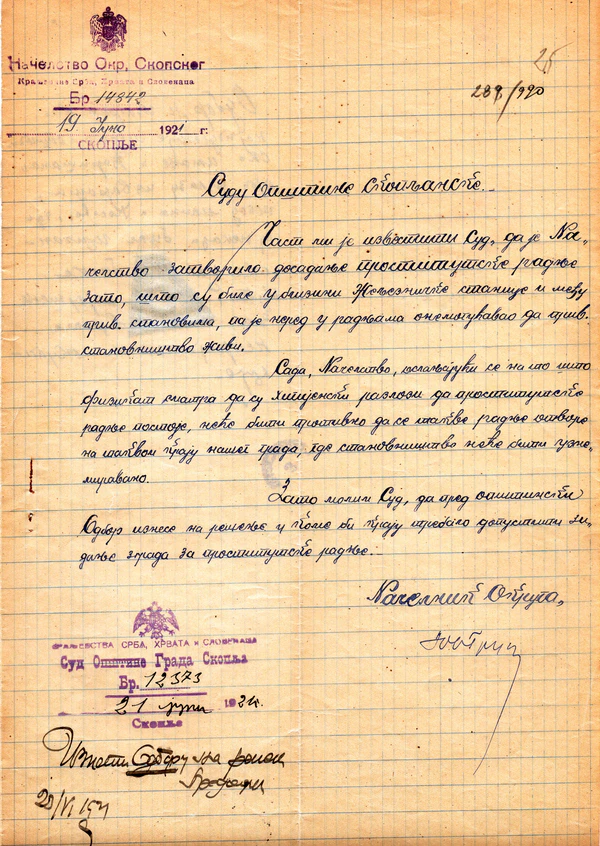 Начелство Окр. Скопског
Краљевине Срба, Хрвата и Словенаца
Бр 14842
19 Јуно 1921 г:
СКОПЉЕ
26
289/920
Суду Општине скопљанске.
Част ми је известити Суд, да је На-
челство затворило досадање проститутске радње
зато, што су биле у близини Жељезничке станице и међу
прив. становима, па је неред у радњама онемогућавао да прив.
становништво живи.
Сада, Начелство, ослањајући се на то што
физикат сматра да су хигијенски разлози да проститутске
радње постоје, неће бити противно да се такве радње отворе
на таквом крају нашег града, где становништво неће бити узне-
миравано.
Зато молим Суд, да пред општински
Одбор изнесе на решење у коме би крају требало допустити зи-
дање зграда за проститутске радње.
Начелник Округа,
КРАЉЕВСТВА СРБА, ХРВАТА и СЛОВЕНАЦА
Суд Општине Града Скопља
Бр. 12373
21 јуни 1921.
Скопље
Изнети Одбору на